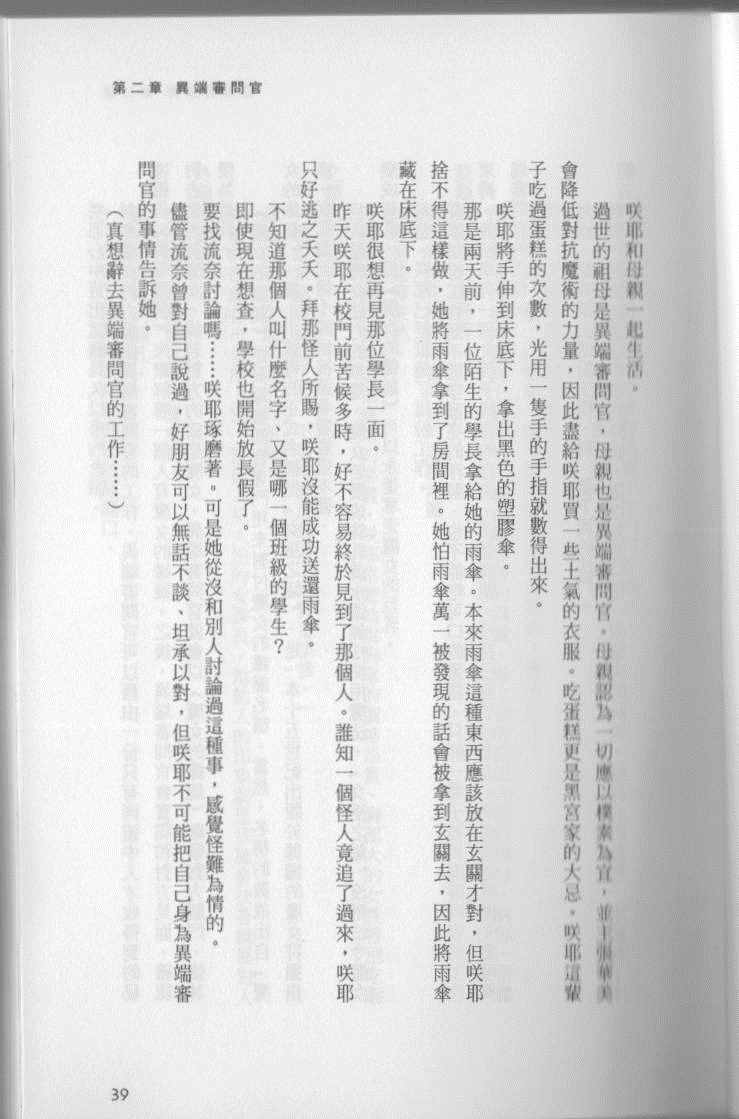 第二章 異端審問官
咲耶和母親一起生活。
過世的祖母是異端審問官，母親也是異端審問官。母親認為一切應以樸素為宜，並主張華美
會降低對抗魔術的力量，因此盡給咲耶買一些土氣的衣服。吃蛋糕更是黑宮家的大忌。咲耶這輩
子吃過蛋糕的次數，光用一隻手的手指就數得出來。
咲耶將手伸到床底下，拿出黑色的塑膠傘。
那是兩天前，一位陌生的學長拿給她的雨傘。本來雨傘這種東西應該放在玄關才對，但咲耶
捨不得這樣做，她將雨傘拿到了房間裡。她怕雨傘萬一被發現的話會被拿到玄關去，因此將雨傘
藏在床底下。
咲耶很想再見那位學長一面。
昨天咲耶在校門前苦候多時，好不容易終於見到了那個人。誰知一個怪人竟追了過來，咲耶
只好逃之夭夭。拜那怪人所賜，咲耶沒能成功送還雨傘。
不知道那個人叫什麼名字、又是哪一個班級的學生？
即使現在想查，學校也開始放長假了。
要找流奈討論嗎……咲耶琢磨著。可是她從沒和別人討論過這種事，感覺怪難為情的。
儘管流奈曾對自己說過，好朋友可以無話不談、坦承以對，但咲耶不可能把自己身為異端審
問官的事情告訴她。
（真想辭去異端審問官的工作……）
39